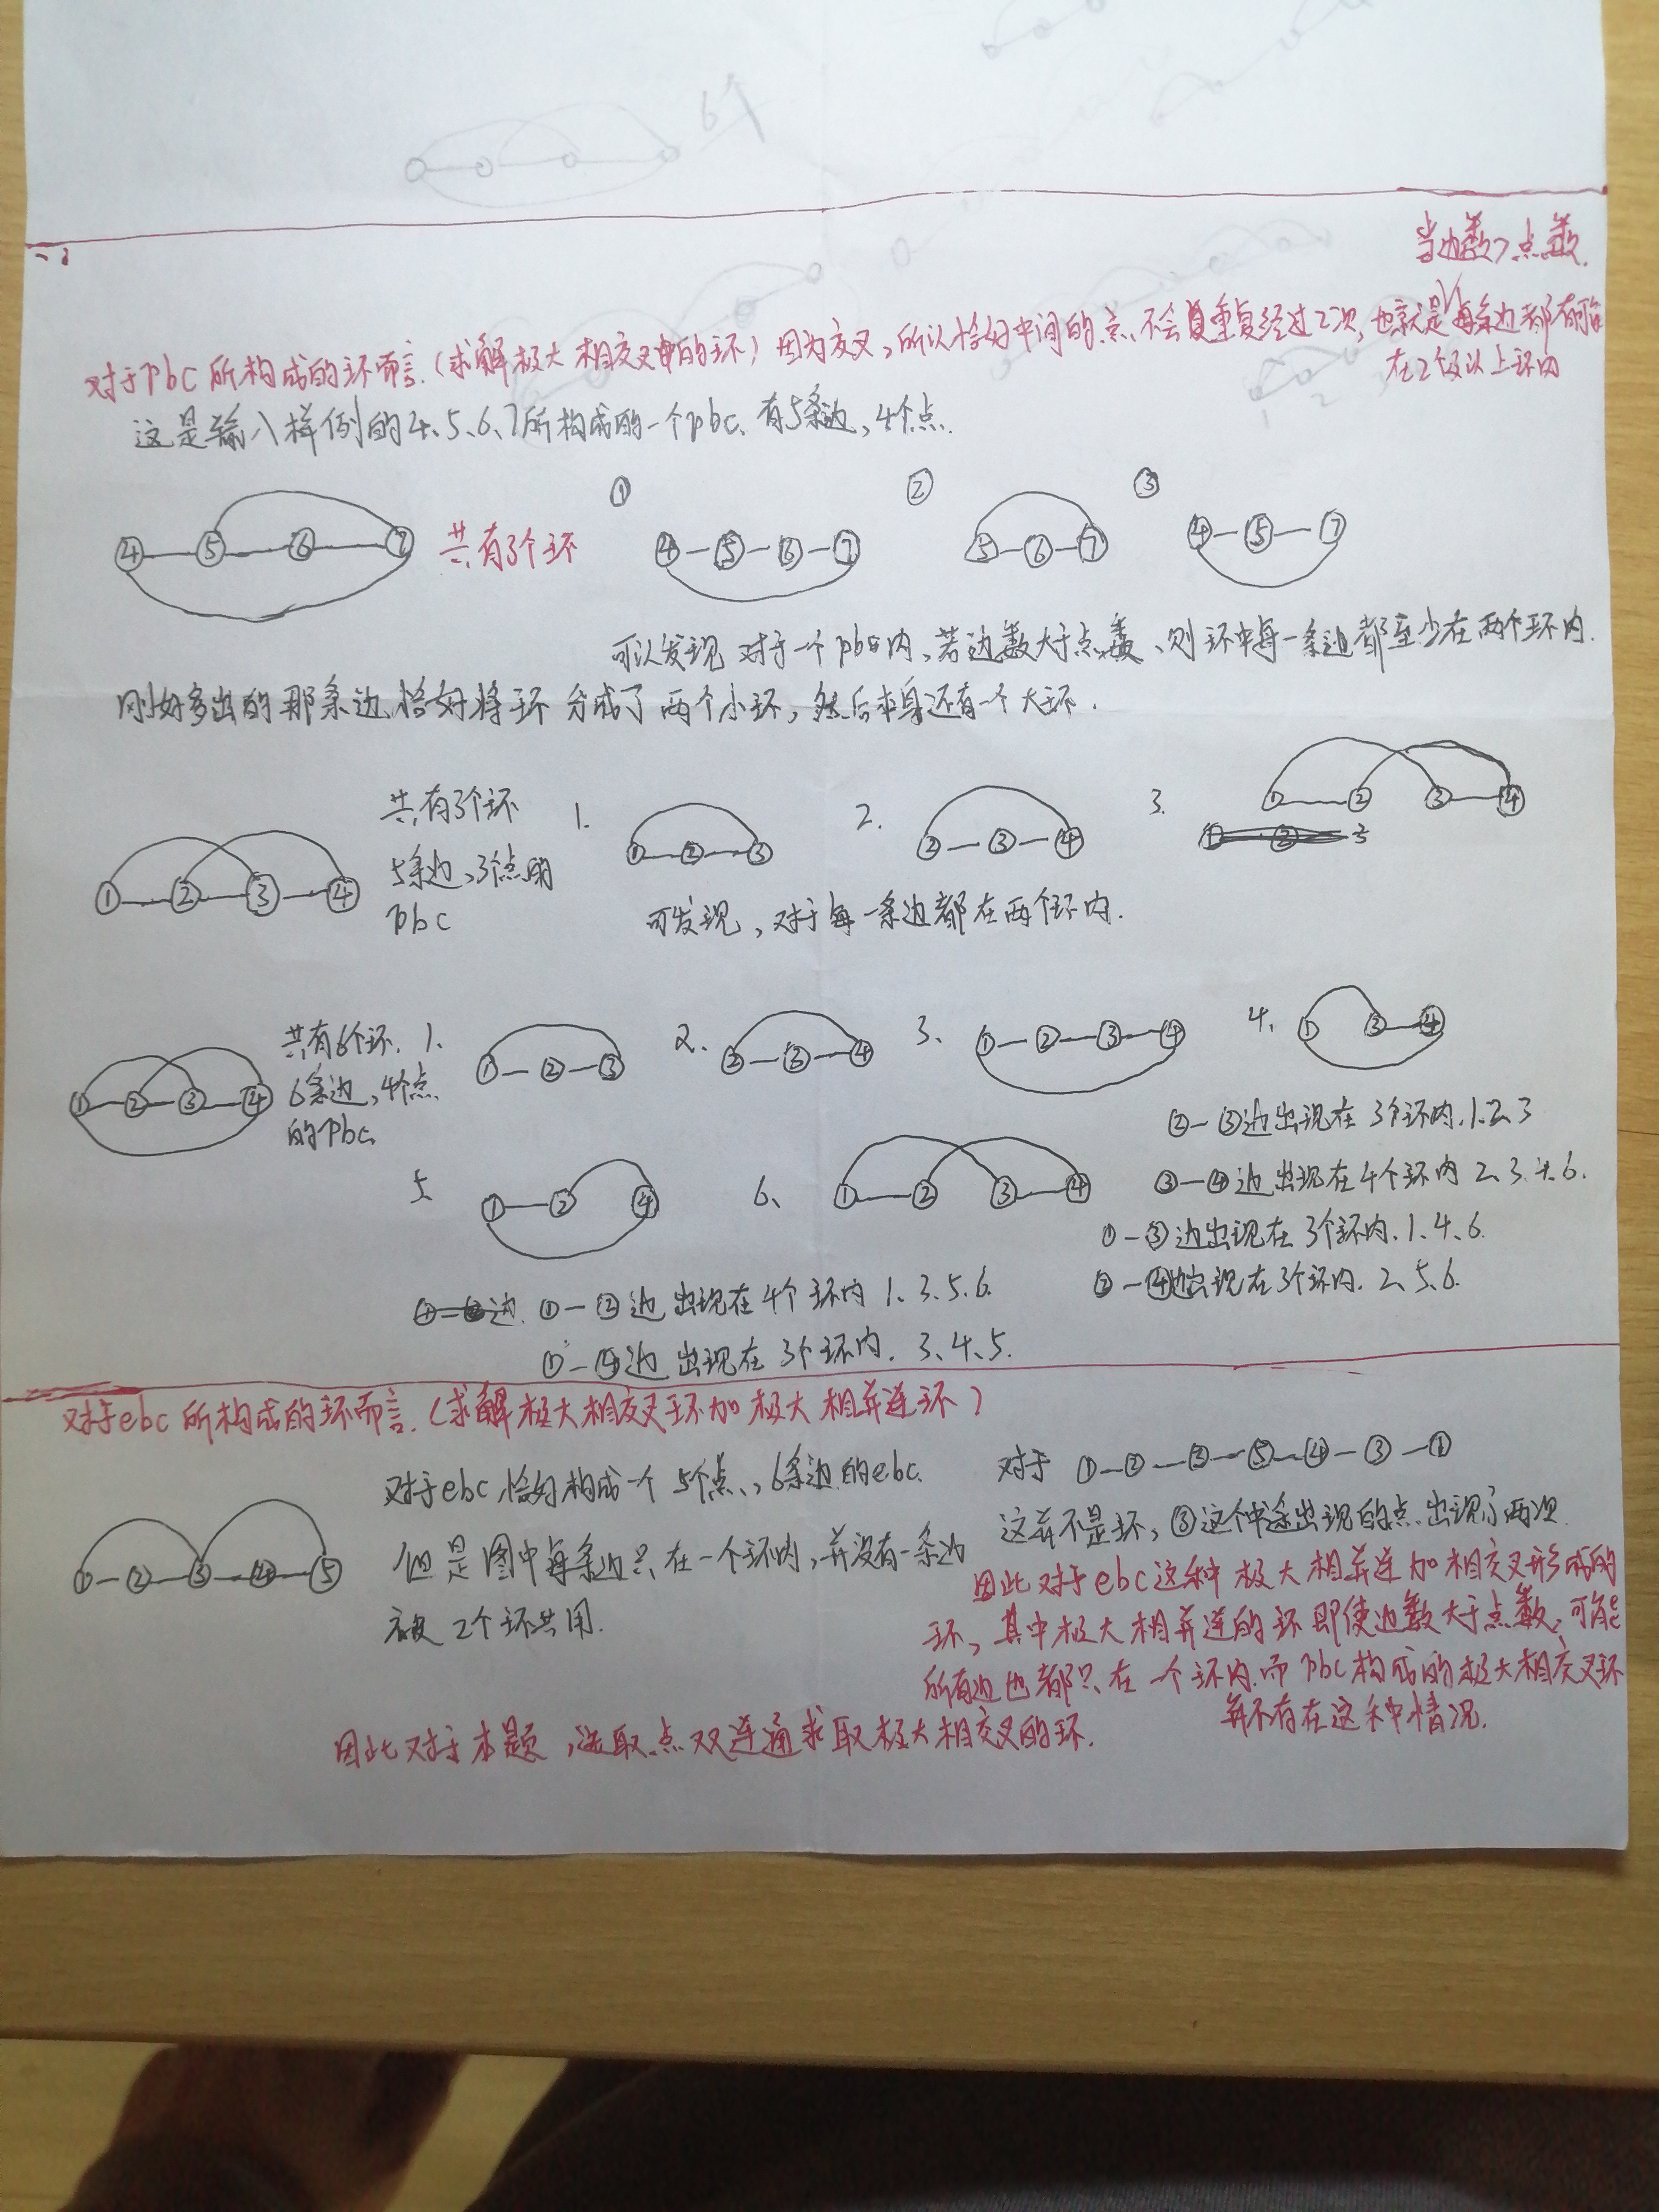 6个
二、
当边数>点数.
对于pbc所构成的环而言.(求解极大相交叉的环)因为交叉,所以恰好中间的点不会重复经过2次,也就是每条边都有可能
在2个及以上环内
这是输入样例的4、5、6、7所构成的一个pbc.有5条边,4个点.
① ② ③
④—⑤—⑥—⑦ 共有3个环 ④—⑤—⑥—⑦ ⑤—⑥—⑦ ④—⑤—⑦
可以发现 对于一个pbc内,若边数大于点数、则环中每一条边都至少在两个环内.
刚好多出的那条边恰好将环分成了两个小环,然后本身还有一个大环.
共有3个环 1. 2. 3.
①—②—③—④ 5条边,3个点的 ①—②—③ ②—③—④ ①—② ③—④
pbc 可发现,对于每一条边都在两个环内.
共有6个环. 1. 2. 3. 4.
①—②—③—④ 6条边,4个点 ①—②—③ ②—③—④ ①—②—③—④ ① ③—④
的pbc.
②—③边出现在3个环内.1、2、3
5. 6、 ③—④边出现在4个环内2、3、4、6.
①—② ④ ①—② ③—④ ①—③边出现在3个环内.1、4、6.
②—④边出现在3个环内.2、5、6.
①—②边出现在4个环内1、3、5、6.
①—④边出现在3个环内.3、4、5.
对于ebc所构成的环而言.(求解极大相交叉环加极大相并连环)
对于ebc,恰好构成一个5个点,6条边的ebc.
①—②—③—④—⑤ 但是图中每条边只在一个环内,并没有一条边
被2个环共用.
对于 ①—②—③—⑤—④—③—①
这并不是环,③这个中途出现的点出现了两次
因此对于ebc这种极大相并连加相交叉形成的
环,其中极大相并连的环即使边数大于点数,可能
所有边也都只在一个环内.而pbc构成的极大相交叉环
并不存在这种情况.
因此对于本题,选取点双连通求取极大相交叉的环.